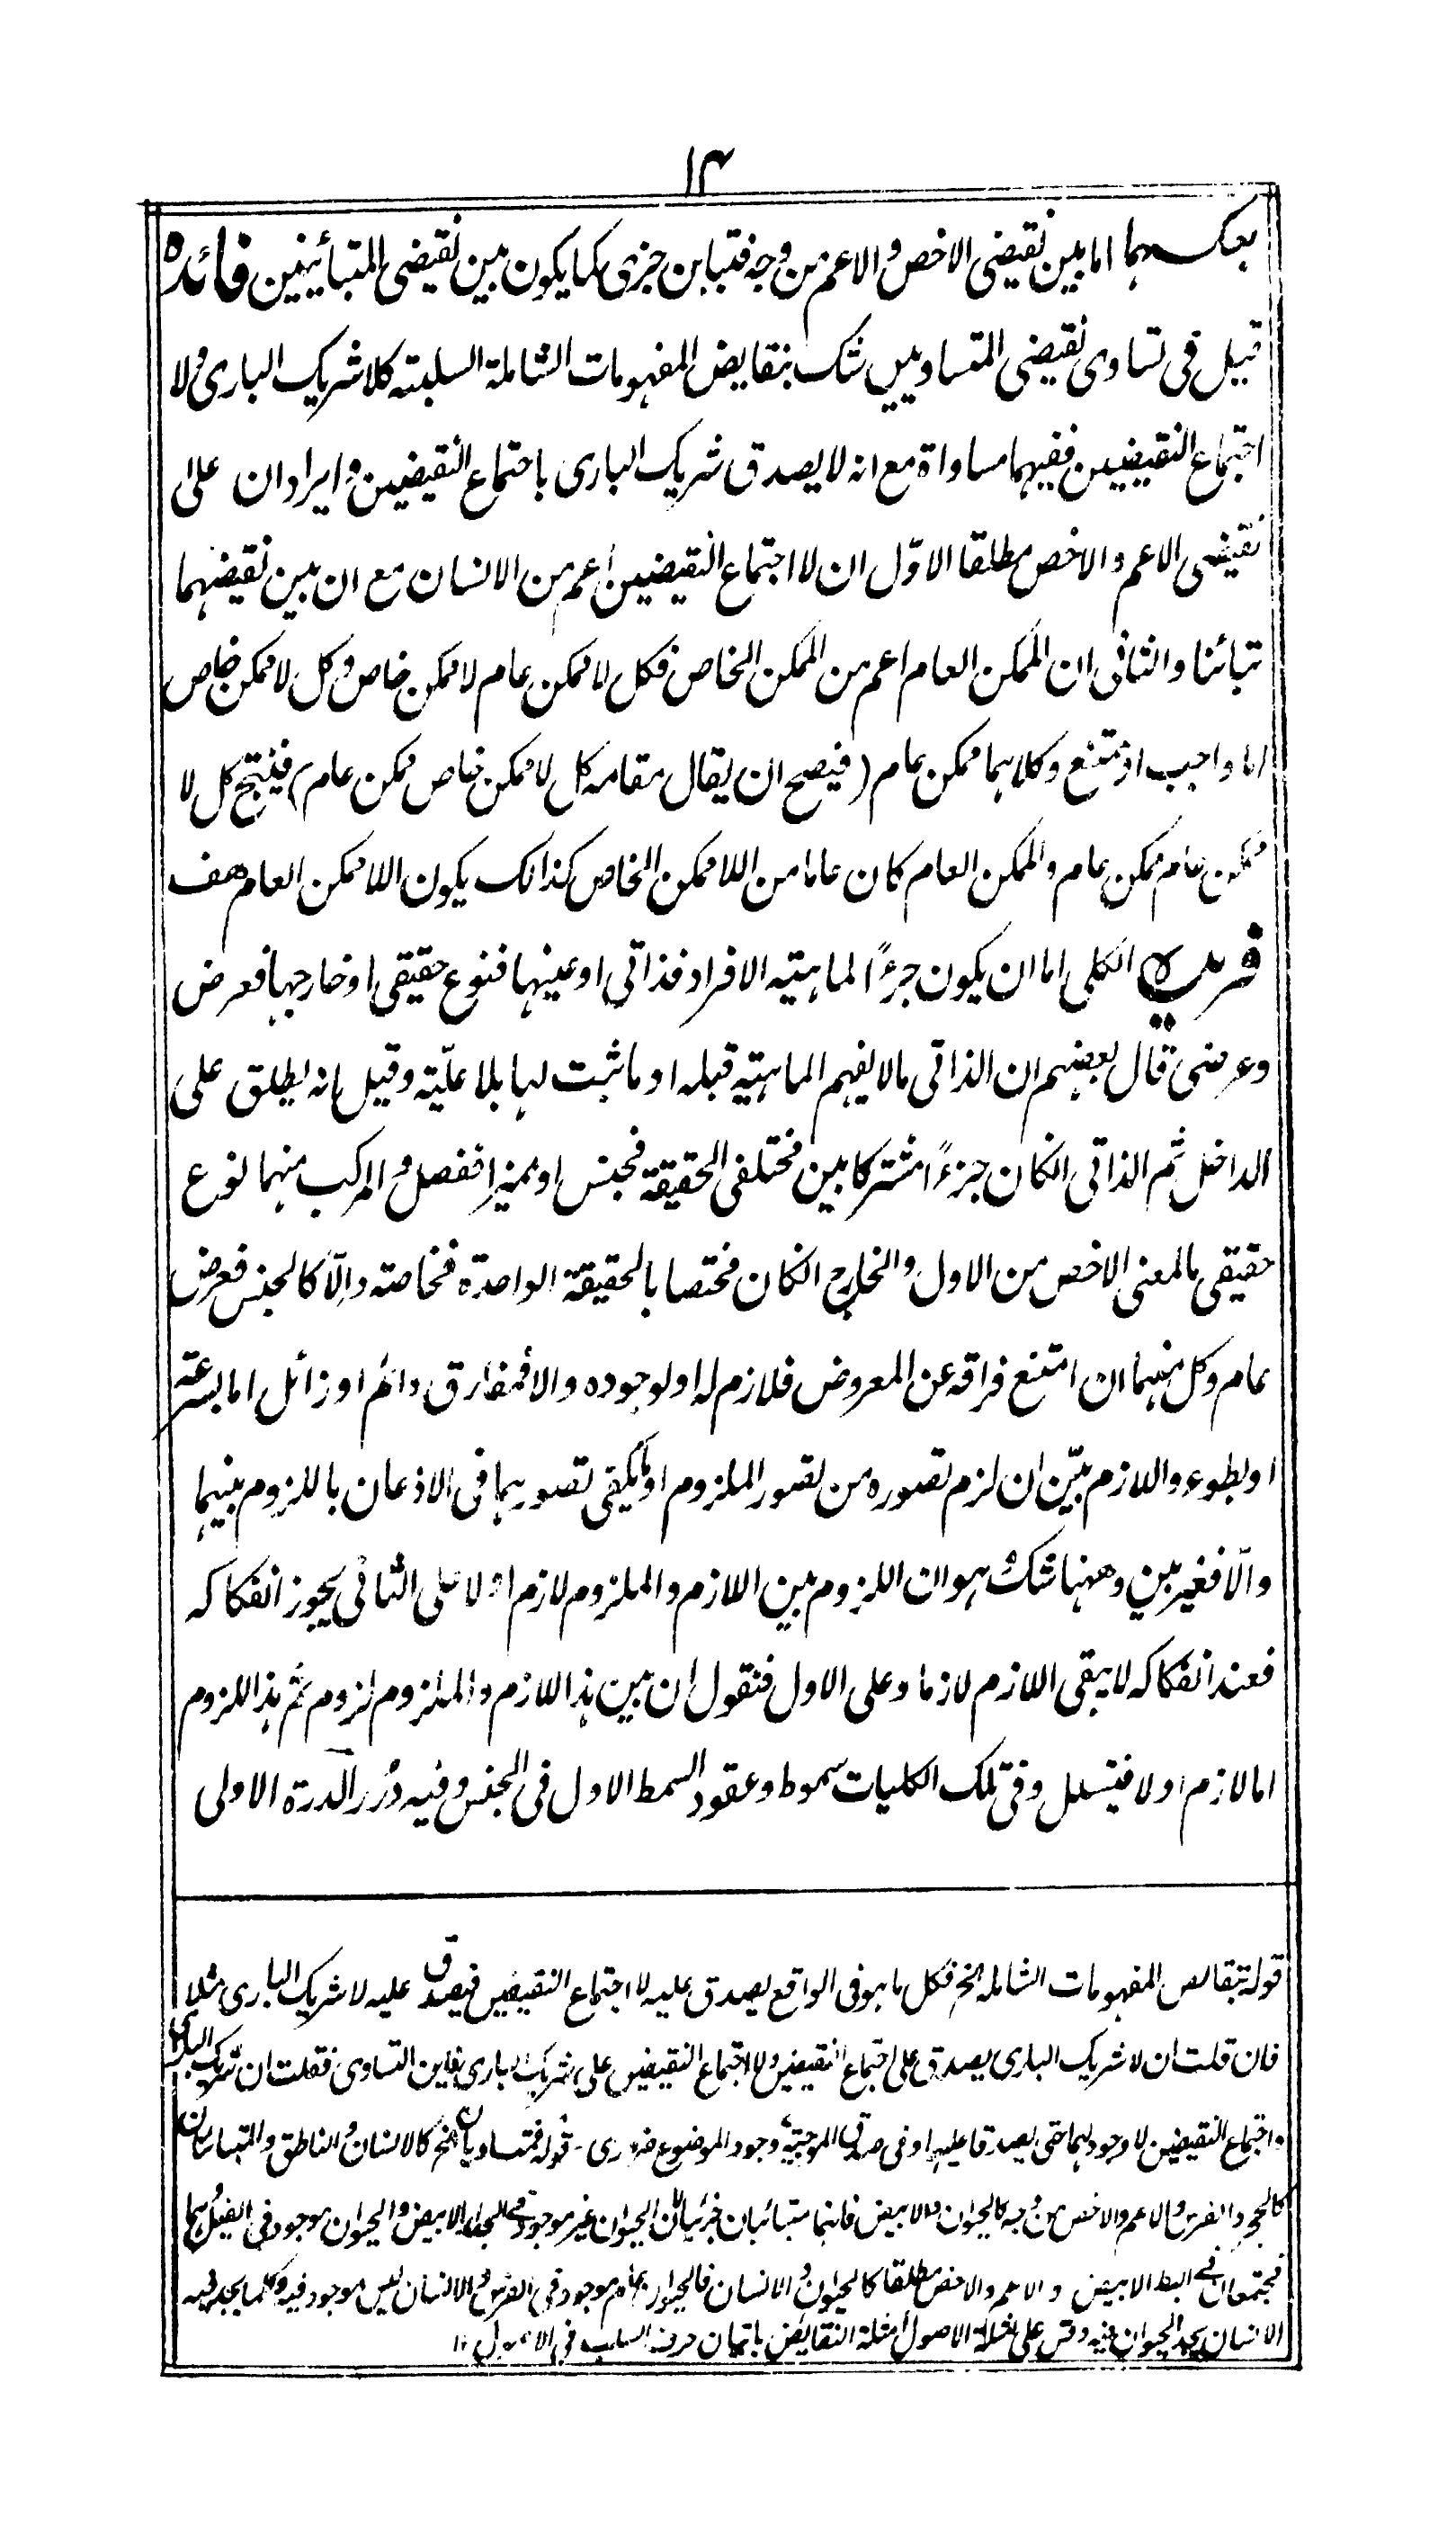 ۱۴
بعكسهما اما بين نقيضى الاخص والاعم من وجه فتباين جزى كما يكون بين نقيضى المتبائنين فائده
قيل فى تساوى نقيضى المتساويين شك بنقايض المفهومات الشاملة السلبيته كلا شريك البارى ولا
اجتماع النقيضين ففيهما مساواة مع انه لا يصدق شريك البارى باجتماع النقيضين وايرادان على
نقيضى الاعم والاخص مطلقا الاوّل ان لا اجتماع النقيضين اعم من الانسان مع ان بين نقيضهما
تبائنا والثانى ان الممكن العام اعم من الممكن الخاص فكل لا ممكن عام لا ممكن خاص وكل لا ممكن خاص
اما واجب او ممتنع وكلاهما ممكن عام (فيصح ان يقال مقامه كل لا ممكن خاص ممكن عام) فينتج كل لا
ممكن عام ممكن عام والممكن العام كان عاما من اللا ممكن الخاص كذالك يكون اللا ممكن العام هف
فريدة الكلى اما ان يكون جزءً لماهيته الافراد فذاتى او عينها فنوع حقيقى او خارجها فعرض
وعرضى قال بعضهم ان الذاتى مالا يفهم الماهيته قبله او ما ثبت لها بلا علّيته وقيل انه يطلق على
الداخل ثم الذاتى انكان جزءً مشتركا بين مختلفى الحقيقة فجنس او مميزا ففصل والمركب منهما نوع
حقيقى بالمعنى الاخص من الاول والخارج انكان مختصا بالحقيقة الواحدة فخاصته والّا كالجنس فعرض
عام وكل منهما ان امتنع فراقه عن المعروض فلازم له او لوجوده والا فمفارق دائم او زائل اما بسرعته
او بطوء واللازم بيّن ان لزم تصوره من تصور الملزوم او يكفى تصورهما فى الاذعان باللزوم بينهما
والّا فغير بين وههنا شك هو ان اللزوم بين اللازم والملزوم لازم او لا على الثانى يجوز انفكاكه
فعند انفكاكه لا يبقى اللازم لازما وعلى الاول فنقول ان بين هذا اللازم والملزوم لزوم ثم هذا اللزوم
اما لازم او لا فيتسلل وفى تلك الكليات سموط وعقود السمط الاول فى الجنس وفيه دُرر الدرة الاولى
قوله بنقايص المفهومات الشامله الخ فكل ما هو فى الواقع يصدق عليه لا اجتماع النقيضين فيصدق عليه لا شريك البارى مثلا
فان قلت ان لا شريك البارى يصدق على اجتماع النقيضين ولا اجتماع النقيضين على شريك البارى فاين التساوى فقلت ان شريك البارى
واجتماع النقيضين لا وجود لهما حتى يصدقا عليه او فى صدق الموجبته وجود الموضوع ضرورى ۔ قوله فمتساويان الخ كالانسان والناطق والمتبائنان
كالحجر والفرس والاعم والاخص من وجه كالحيوان والابيض فانهما متبائنان جزئيا لان الحيوان غير موجود فى الجدار الابيض والحيوان موجود فى الفيل
فيجتمعان فى البط الابيض والاعم والاخص مطلقا كالحيوان والانسان فالحيوان عام موجود فى الفرس والانسان ليس موجود فيه وكلما يجد فيه
الانسان يجد الحيوان فيه وقس على امثلة الاصول امثلة النقايض باتيان حرف السلب فى الاصول ۱۲